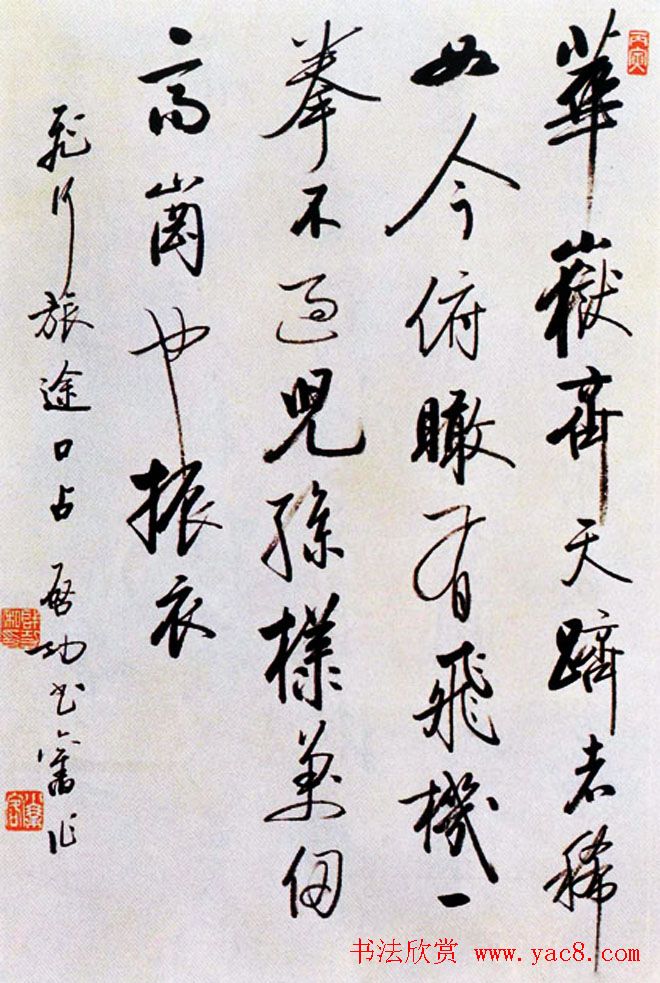 華嶽齊天躋者稀
如今俯瞰有飛機一
拳不過兒孫樣萬仞
高崗也振衣
飛行旅途口占 啓功書舊作
丙寅
书法欣赏 www.yac8.com